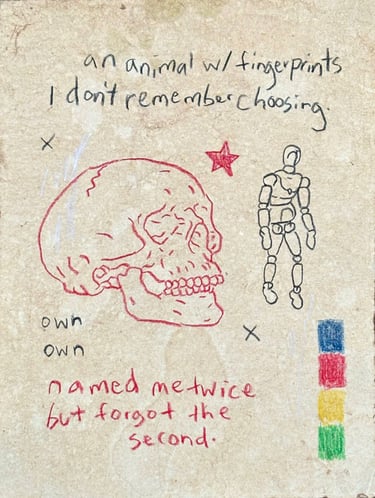 an animal w/ fingerprints
I don't remember choosing.
own
own
named me twice
but forgot the
second.